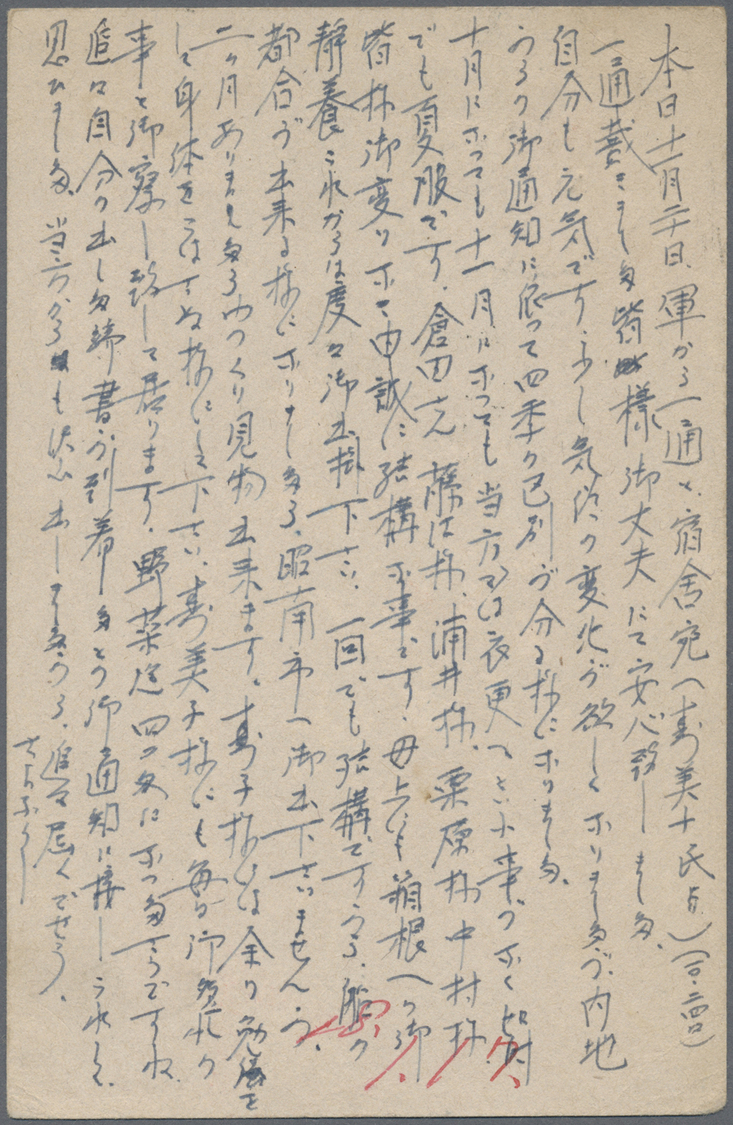 本日十一月二十日、軍から一通と、宿舎宛へ寿美子氏より
一通戴きました 皆様御丈夫にて安心致しました、
自分も元気です、少し気候の変化が欲しくなりましたが、内地
からの御通知に依って四季の区別が分る様になりました。
十月になっても十一月になっても当方では衣更へといふ事がなく
でも夏服です、倉田さん 様、浦井様、栗原様 中村様
皆様御変りなく由誠に結構な事です、母上にも箱根への御
静養これからは度々御出掛下さい、一回でも結構ですから、
都合が出来る様になりましたら、昭南市へ御出下さいませんか、
二ヶ月ありましたらゆっくり見物出来ます、寿子様には余り勉強を
して身体をこはさぬ様にして下さい、寿美子様にも毎日御多忙の
事と御察し致して居ります、野菜迄四つ匁になったさうですね
追々自分の出した端書が到着したとの御通知に接しられると、
思ひました、当方からも沢山出しましたから、追々届くでせう、
さよなら